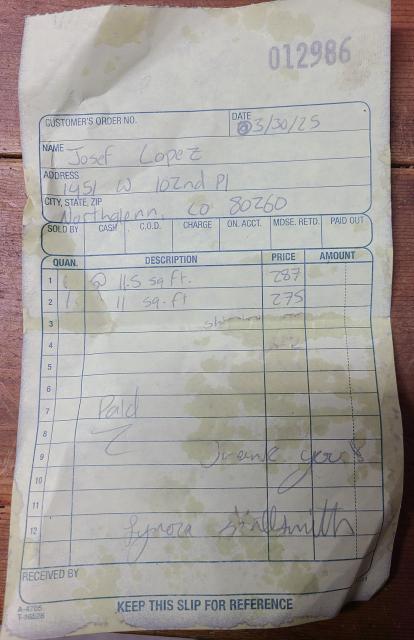 012986
CUSTOMER'S ORDER NO. DATE 03/30/25
NAME Josef Lopez
ADDRESS 1951 W 102nd Pl
CITY, STATE, ZIP Northglenn, CO 80260
SOLD BY CASH C.O.D. CHARGE ON. ACCT. MDSE. RETD. PAID OUT
QUAN. DESCRIPTION PRICE AMOUNT
1 1 @ 11.5 sq ft. 287
2 1 11 sq.ft 275
3
4
5
6
7 Paid
8
9 Thank you!
10
11
12
RECEIVED BY
A-4705
KEEP THIS SLIP FOR REFERENCE